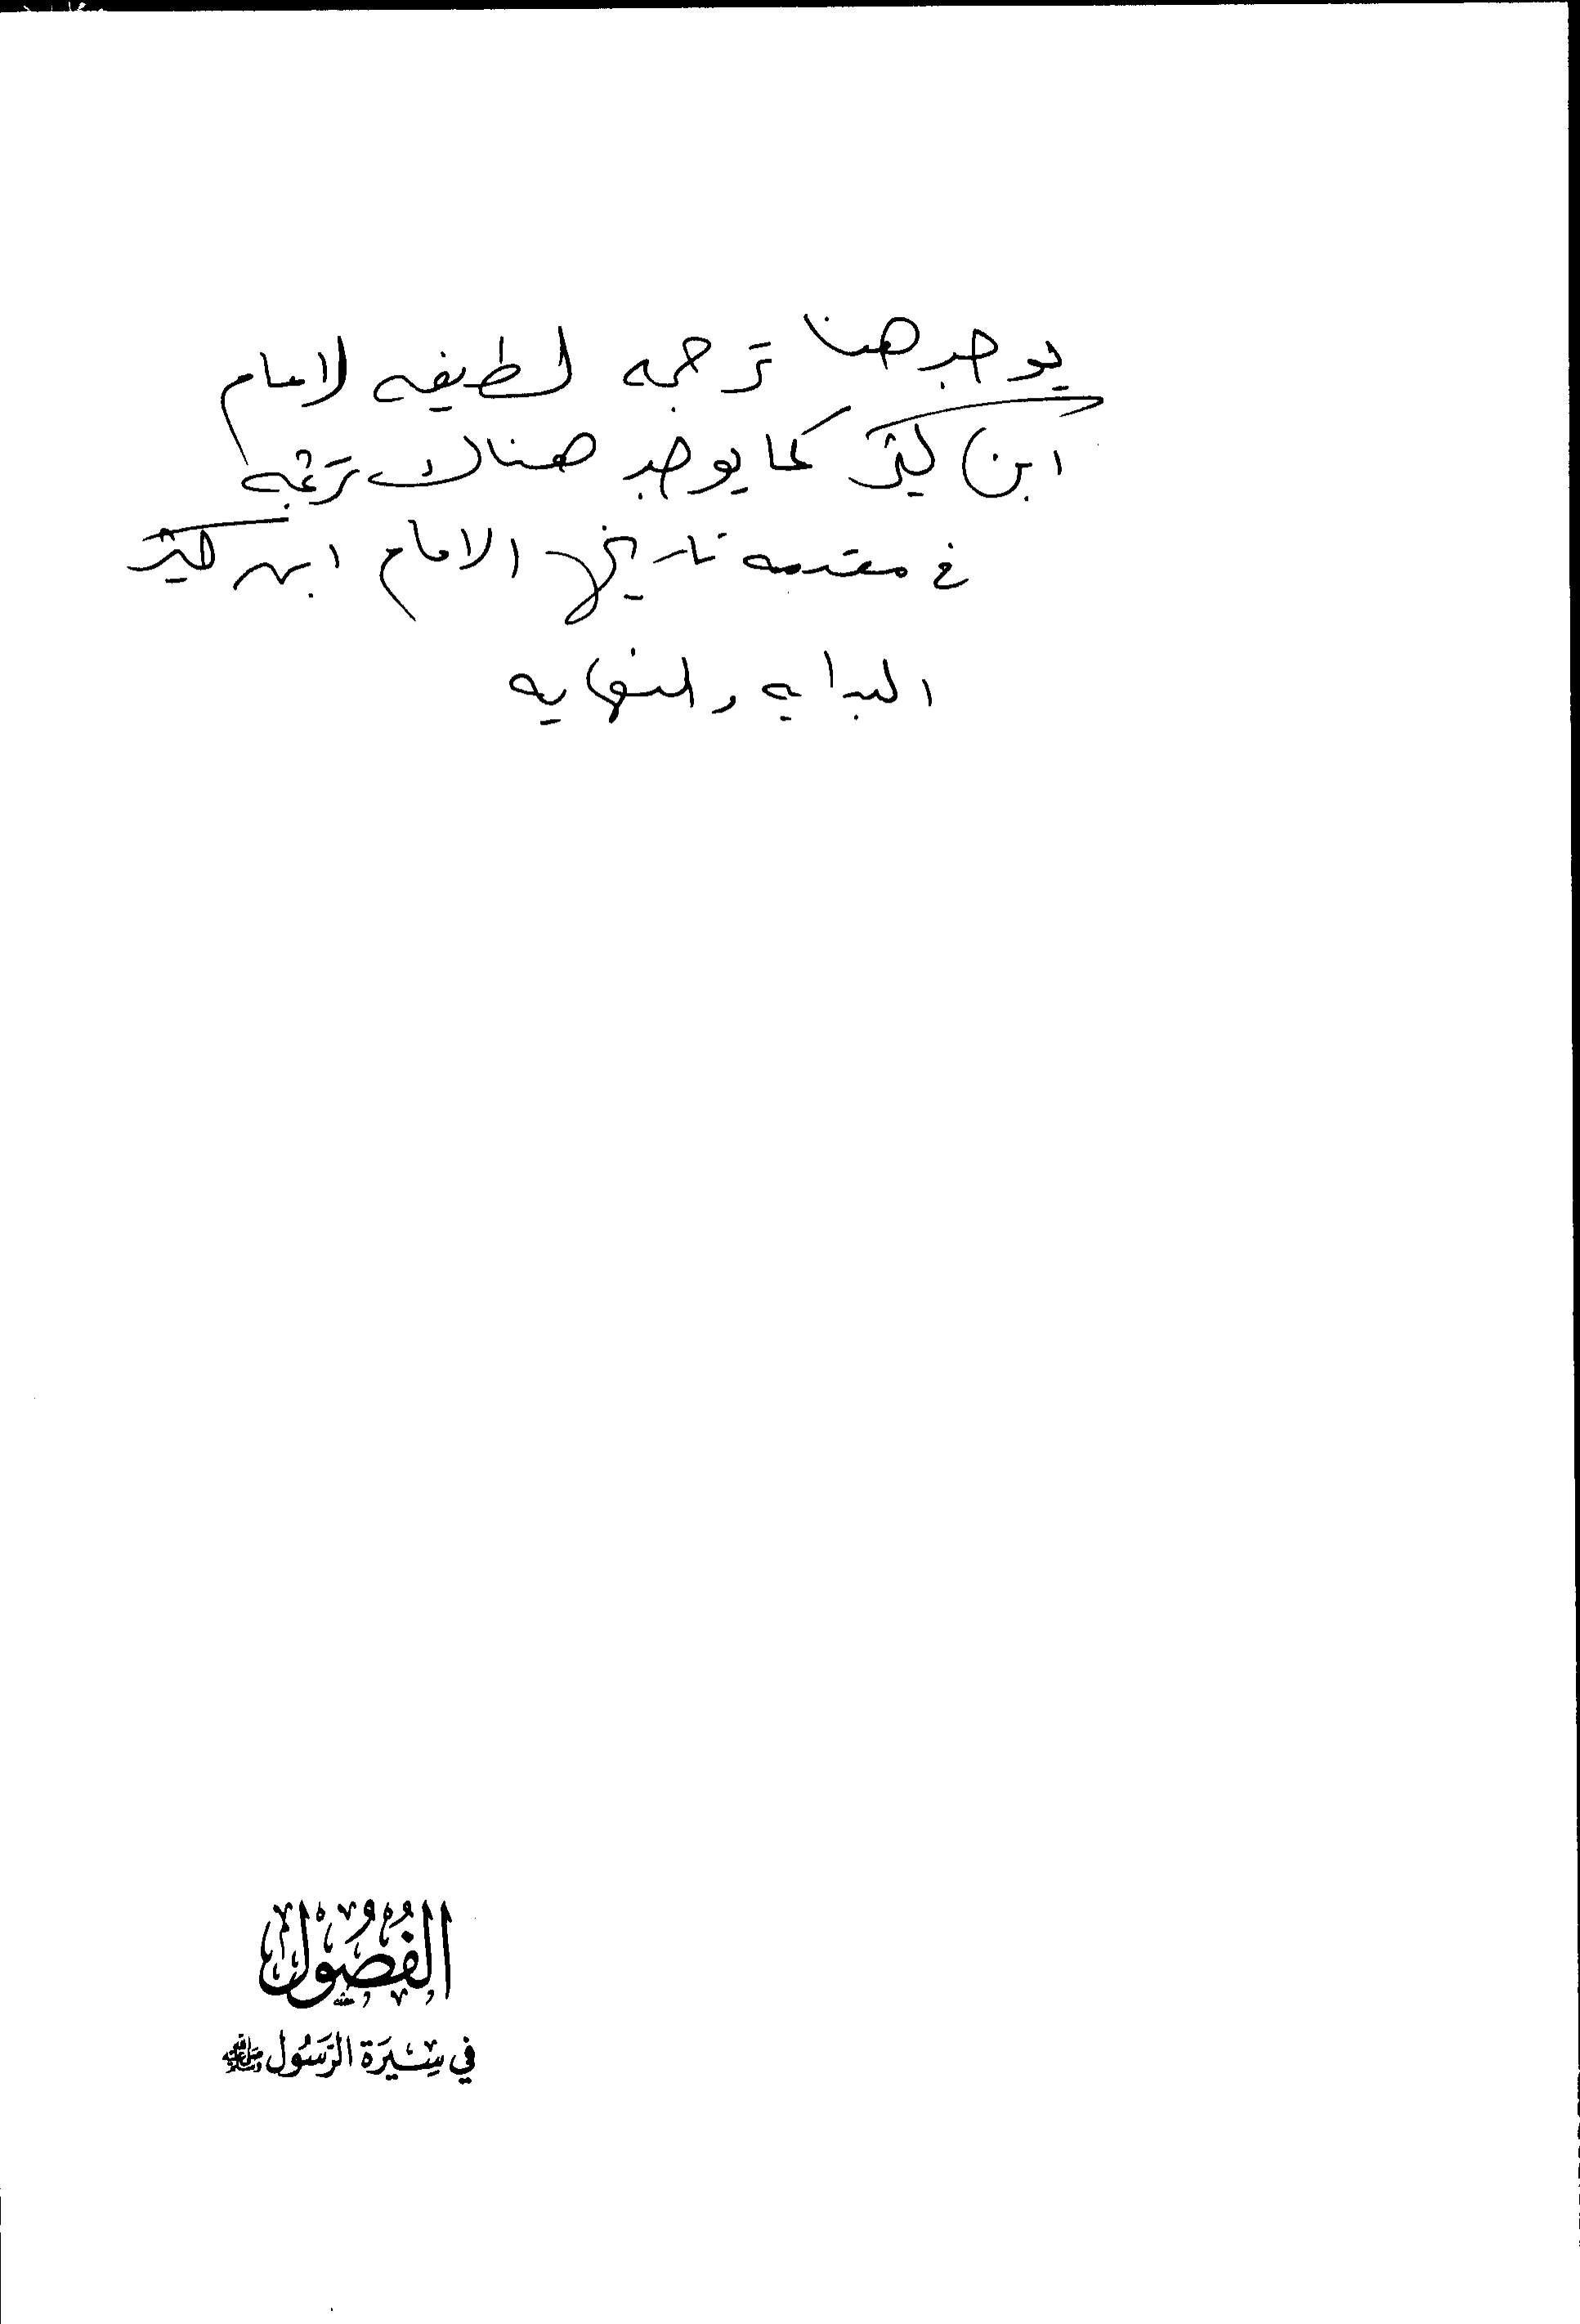 يوجد هنا ترجمه لطيفه لامام
ابن كثير كما يوجد هناك ترجمه
في مقدمه تاريخ الامام ابن كثير
البدايه والنهايه
الفُصُول
في سِيرَة الرَّسُول ﷺ